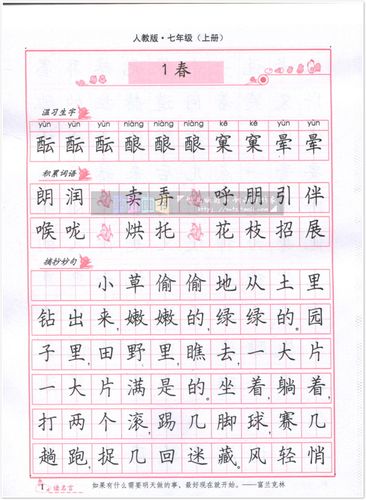 人教版·七年级（上册）
1 春
温习生字
yùn yùn yùn niàng niàng niàng kē kē yùn yùn
酝 酝 酝 酿 酿 酿 窠 窠 晕 晕
积累词语
朗 润 卖 弄 呼 朋 引 伴
喉 咙 烘 托 花 枝 招 展
摘抄妙句
小 草 偷 偷 地 从 土 里
钻 出 来，嫩 嫩 的，绿 绿 的。园
子 里，田 野 里，瞧 去，一 大 片
一 大 片 满 是 的。坐 着，躺 着，
打 两 个 滚，踢 几 脚 球，赛 几
趟 跑，捉 几 回 迷 藏。风 轻 悄
1 读名言
如果有什么需要明天做的事，最好现在就开始。——富兰克林